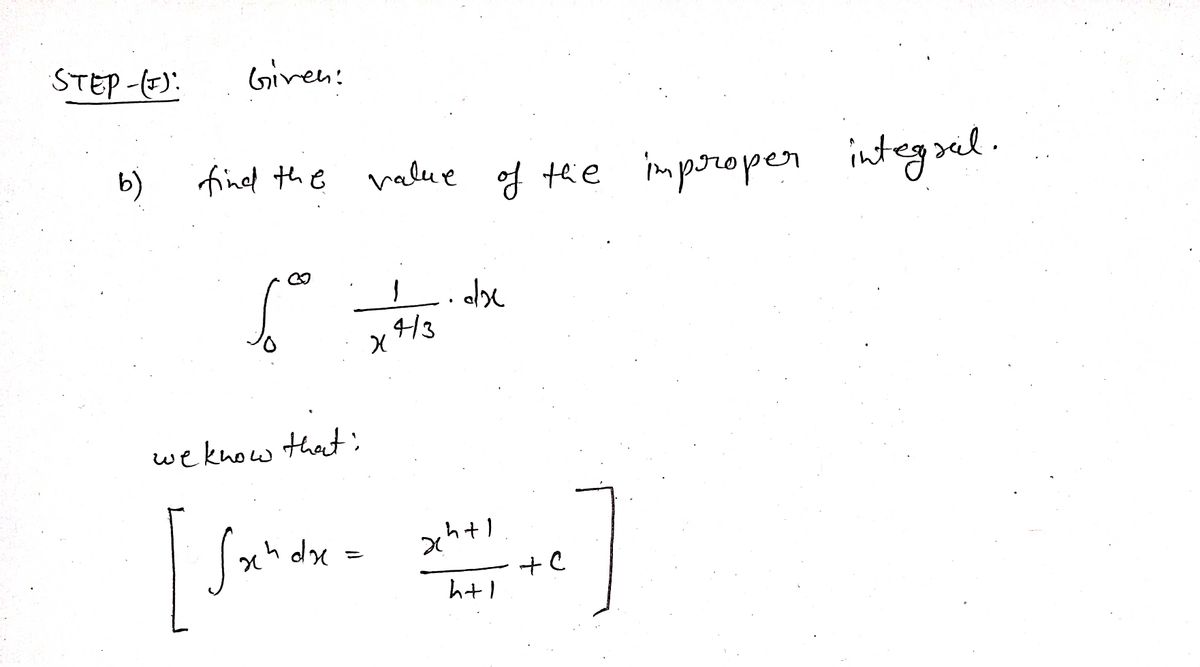 STEP-(I): Given:
b) find the value of the improper integral.
∫₀^∞ 1/x^4/3 . dx
we know that:
[ ∫xⁿ dx = xⁿ⁺¹/n+1 + C ]